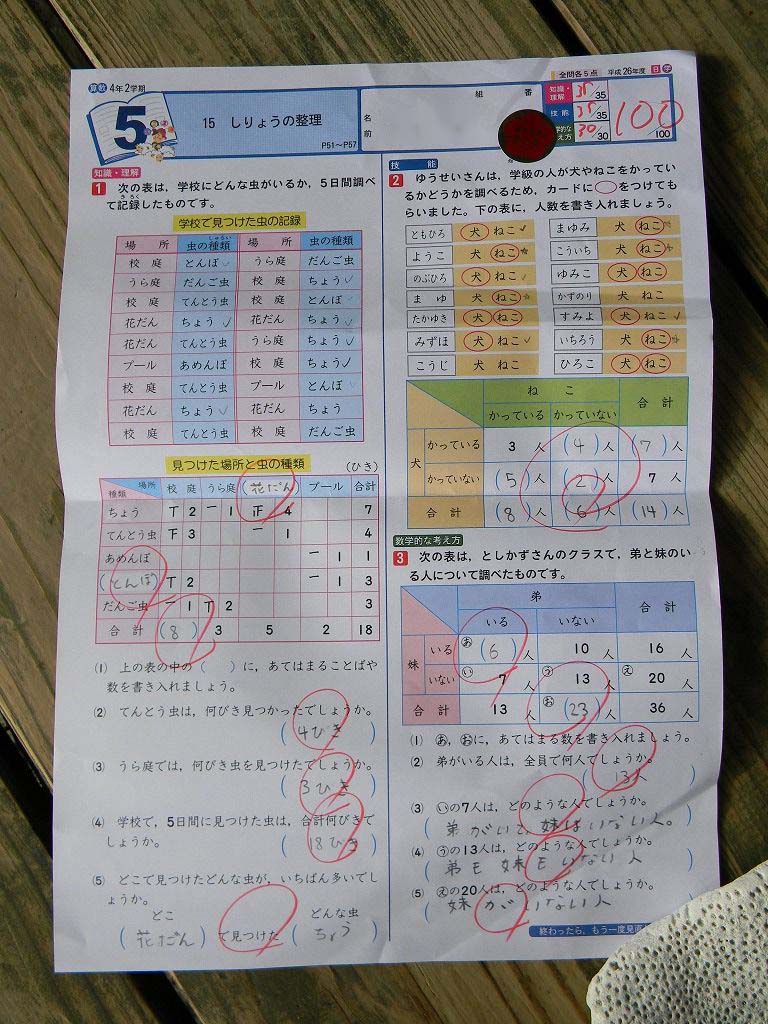 算数 4年2学期
5
15 しりょうの整理
P51〜P57
名前
組 番
全問各5点 平成26年度 日 学
知識・理解 35 35
技能 35 35
数学的な考え方 30 30
100
100
知識・理解
1 次の表は，学校にどんな虫がいるか，5日間調べ
て記録したものです。
きろく
学校で見つけた虫の記録
場所 虫の種類 場所 虫の種類
しゅるい
校庭 とんぼ うら庭 だんご虫
うら庭 だんご虫 校庭 ちょう
校庭 てんとう虫 校庭 とんぼ
花だん ちょう 花だん ちょう
花だん てんとう虫 うら庭 ちょう
プール あめんぼ 校庭 ちょう
校庭 てんとう虫 プール とんぼ
花だん ちょう 花だん ちょう
校庭 てんとう虫 校庭 だんご虫
見つけた場所と虫の種類 (ひき)
種類 場所 校庭 うら庭 (花だん) プール 合計
ちょう 丅 2 一 1 正 4 7
てんとう虫 下 3 一 1 4
あめんぼ 一 1 1
(とんぼ) 丅 2 一 1 3
だんご虫 一 1 丅 2 3
合計 (8) 3 5 2 18
(1) 上の表の中の( )に，あてはまることばや
数を書き入れましょう。
(2) てんとう虫は，何びき見つかったでしょうか。
(4ひき)
(3) うら庭では，何びき虫を見つけたでしょうか。
(3ひき)
(4) 学校で，5日間に見つけた虫は，合計何びきで
しょうか。 (18ひき)
(5) どこで見つけたどんな虫が，いちばん多いでし
ょうか。
どこ どんな虫
(花だん)で見つけた(ちょう)
技能
2 ゆうせいさんは，学級の人が犬やねこをかってい
るかどうかを調べるため，カードに○をつけても
らいました。下の表に，人数を書き入れましょう。
ともひろ 犬 ねこ まゆみ 犬 ねこ
ようこ 犬 ねこ こういち 犬 ねこ
のぶひろ 犬 ねこ ゆみこ 犬 ねこ
まゆ 犬 ねこ かずのり 犬 ねこ
たかゆき 犬 ねこ すみよ 犬 ねこ
みずほ 犬 ねこ いちろう 犬 ねこ
こうじ 犬 ねこ ひろこ 犬 ねこ
ねこ 合計
かっている かっていない
犬 かっている 3人 (4)人 (7)人
かっていない (5)人 (2)人 7人
合計 (8)人 (6)人 (14)人
数学的な考え方
3 次の表は，としかずさんのクラスで，弟と妹のい
る人について調べたものです。
弟 合計
いる いない
妹 いる あ(6)人 10人 16人
いない い7人 う13人 え20人
合計 13人 お(23)人 36人
(1) あ，おに，あてはまる数を書き入れましょう。
(2) 弟がいる人は，全員で何人でしょうか。
(13人)
(3) いの7人は，どのような人でしょうか。
(弟がいて、妹はいない人。)
(4) うの13人は，どのような人でしょうか。
(弟も妹もいない人)
(5) えの20人は，どのような人でしょうか。
(妹がいない人)
終わったら，もう一度見直